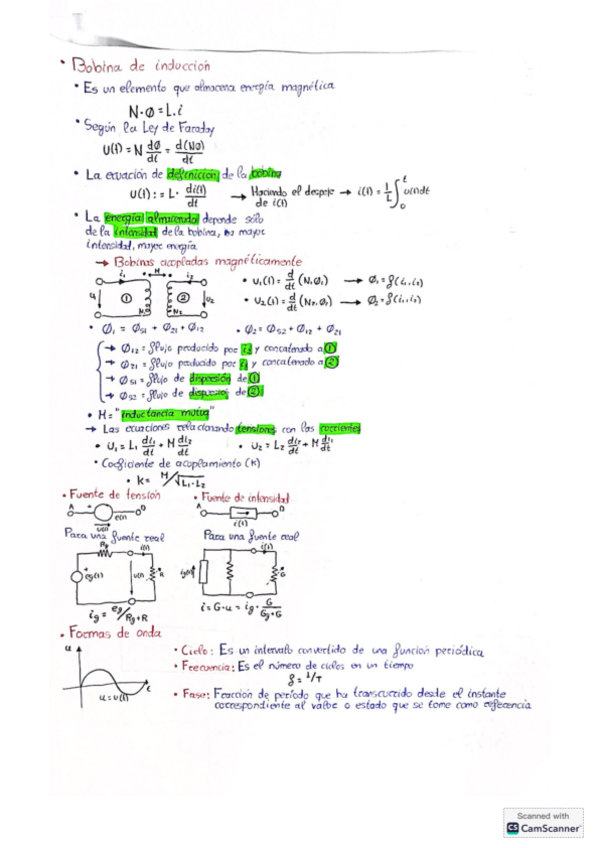 • Bobina de inducción
• Es un elemento que almacena energía magnética
N·Ø = L.i
• Según la Ley de Faraday
U(t) = N dØ/dt = d(NØ)/dt
• La ecuación de definición de la bobina
U(t) := L· di(t)/dt → Haciendo el despeje de i(t) → i(t) = 1/L ∫₀ᵗ u(t)dt
• La energía almacenada depende sólo
de la intensidad de la bobina, mayor
intensidad, mayor energía
→ Bobinas acopladas magnéticamente
i₁ M i₂
u₁ ① N₁ N₂ ② u₂
• U₁(t) = d/dt (N₁Ø₁) → Ø₁ = f(i₁,i₂)
• U₂(t) = d/dt (N₂,Ø₂) → Ø₂ = f(i₁,i₂)
• Ø₁ = Øs1 + Ø21 + Ø12 • Ø₂ = Øs2 + Ø12 + Ø21
→ Ø12 = flujo producido por i₂ y concatenado a ①
→ Ø21 = flujo producido por i₁ y concatenado a ②
→ Øs1 = flujo de dispersión de ①
→ Øs2 = flujo de dispersión de ②
• M = "inductancia mutua"
→ Las ecuaciones relacionando tensiones con las corrientes
• U₁ = L₁ di₁/dt + M di₂/dt • U₂ = L₂ di₂/dt + M di₁/dt
• Coeficiente de acoplamiento (K)
• K = M/√L₁·L₂
• Fuente de tensión • Fuente de intensidad
A + e(t) B A i(t) B
u(t)
Para una fuente real Para una fuente real
Rg i(t) i(t)
+ eg(t) u(t) R ig(t) G
ig = eg/Rg+R i = G·u = ig · G/Gg+G
• Formas de onda
u
t
u = u(t)
• Ciclo: Es un intervalo convertido de una función periódica
• Frecuencia: Es el número de ciclos en un tiempo
f = 1/T
• Fase: Fracción de período que ha transcurrido desde el instante
correspondiente al valor o estado que se tome como referencia
Scanned with
CS CamScanner